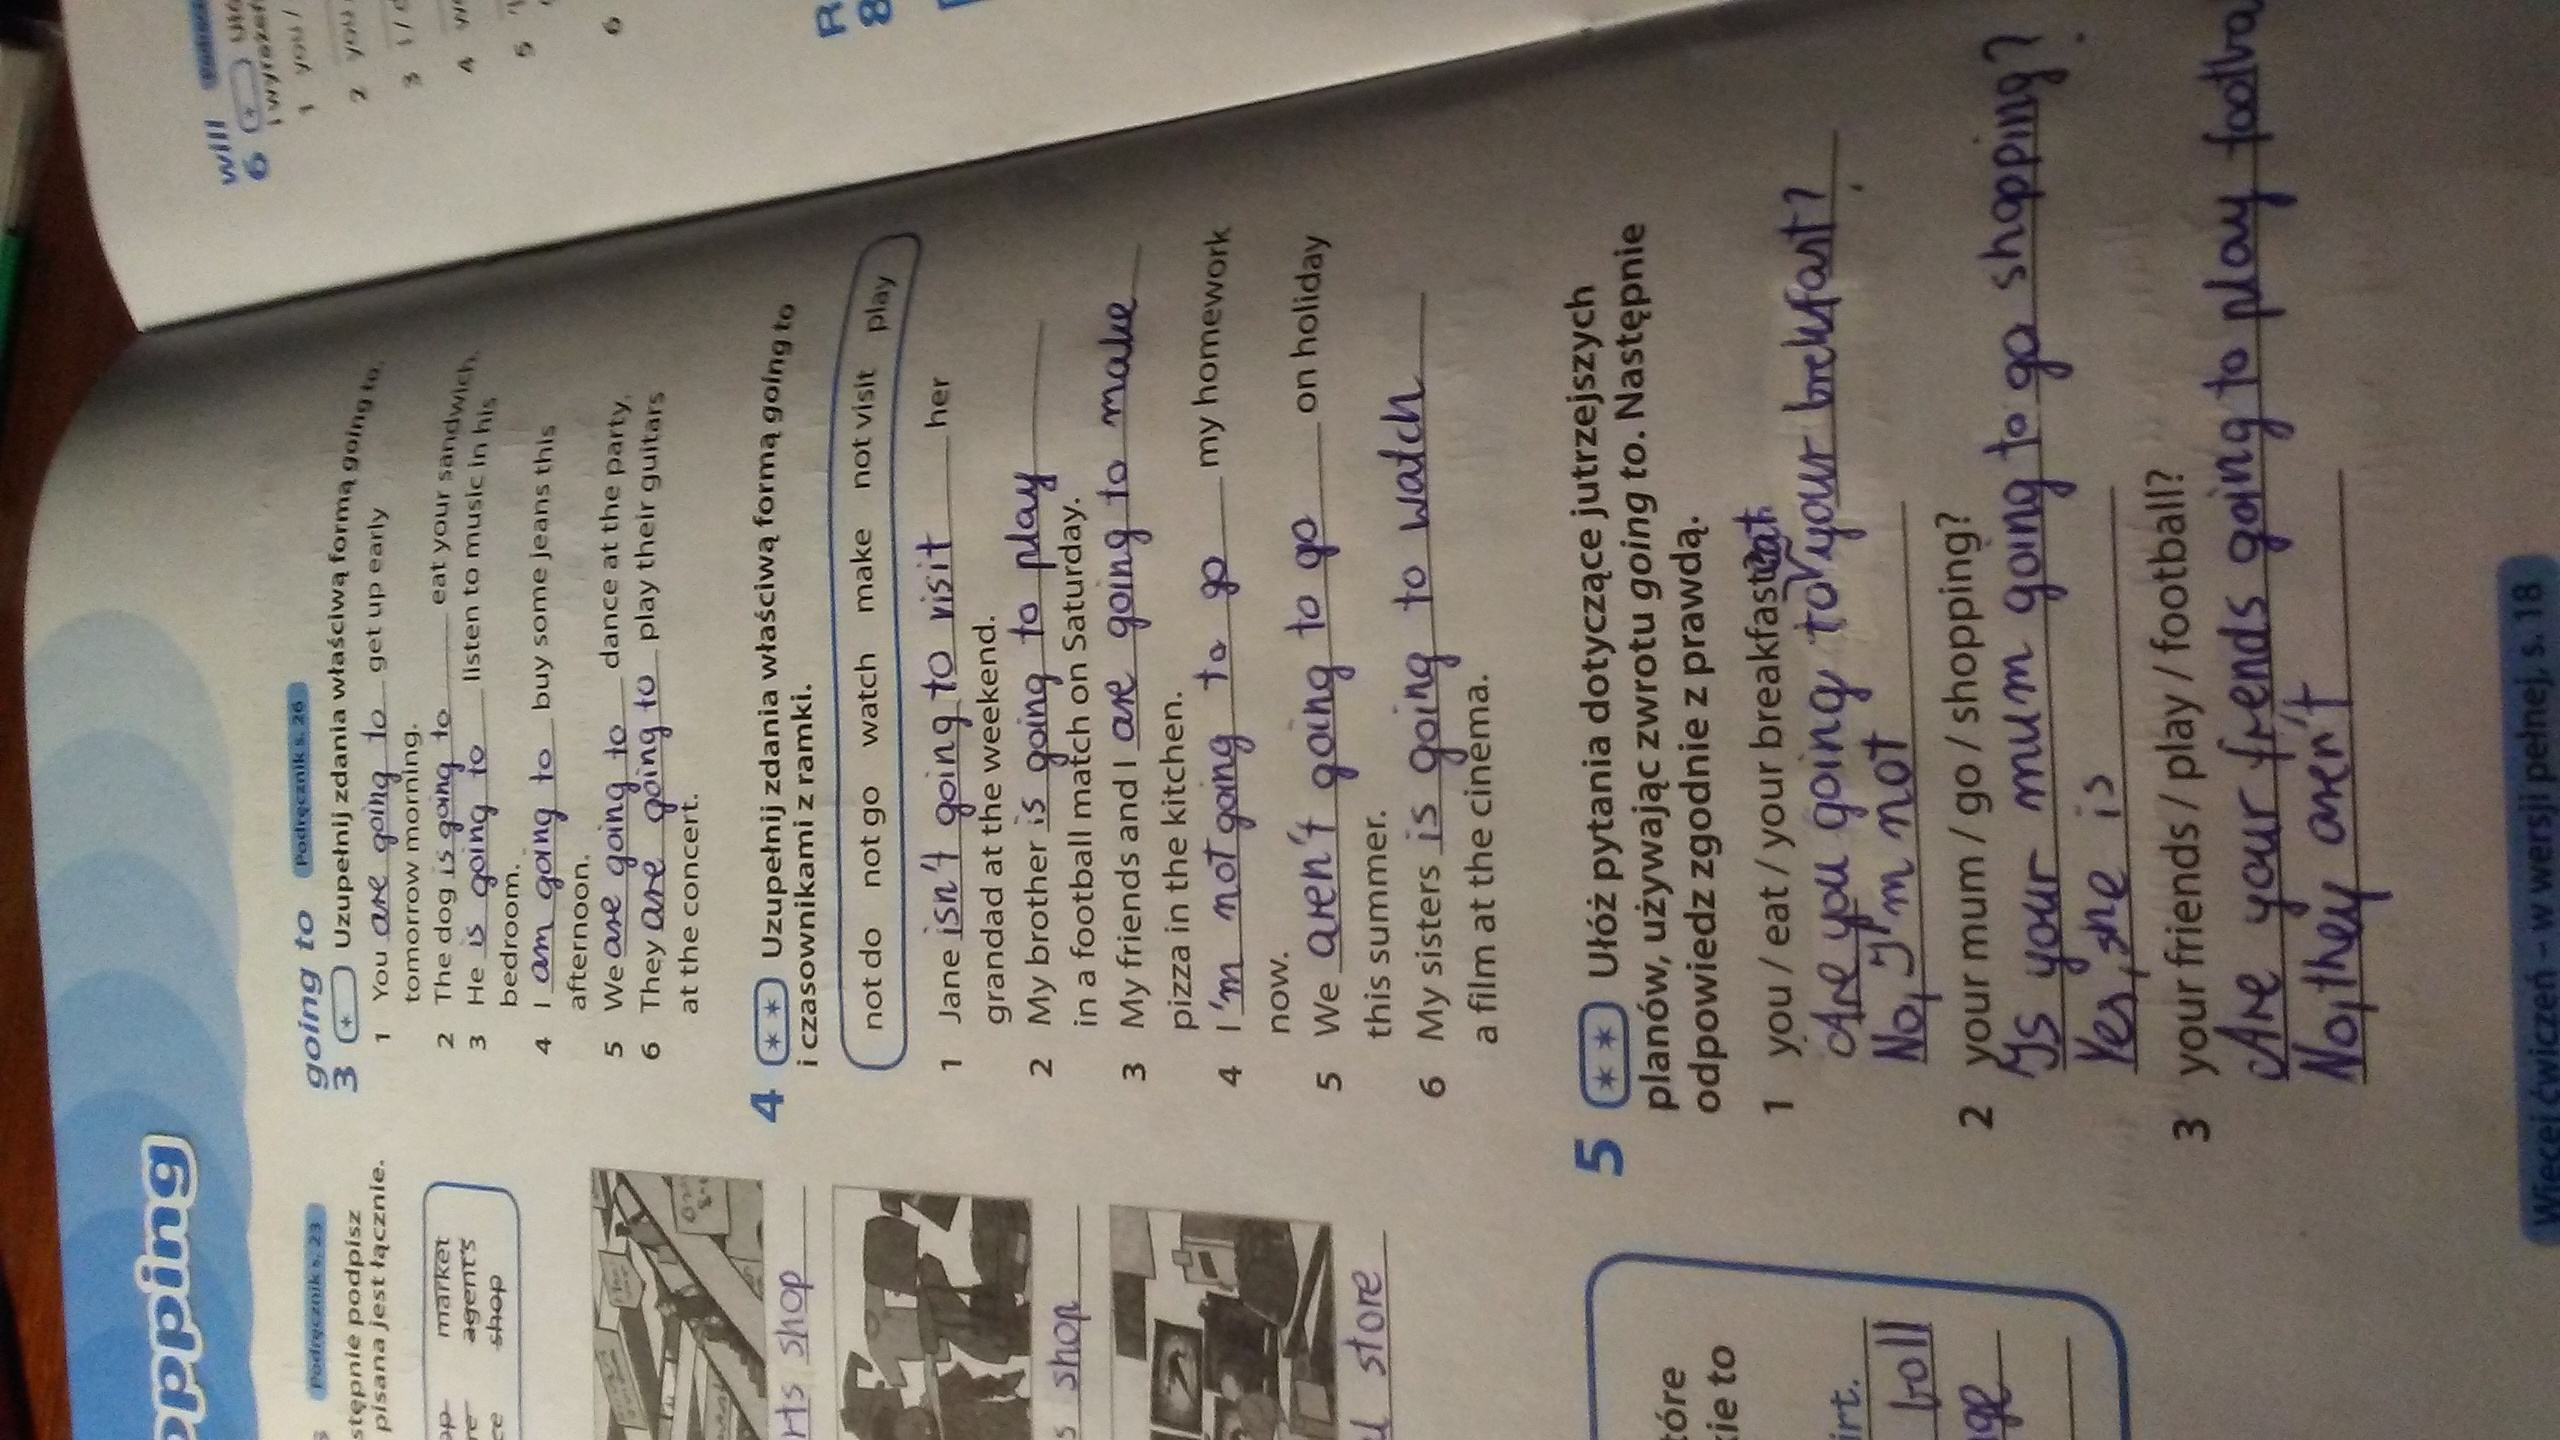 opping
Podręcznik s. 23
stępnie podpisz
pisana jest łącznie.
market
agent's
shop
rts shop
s shop
store
tóre
kie to
irt.
boll
going to Podręcznik s. 26
3 * Uzupełnij zdania właściwą formą going to.
1 You are going to get up early
tomorrow morning.
2 The dog is going to eat your sandwich.
3 He is going to listen to music in his
bedroom.
4 I am going to buy some jeans this
afternoon.
5 We are going to dance at the party.
6 They are going to play their guitars
at the concert.
4 ** Uzupełnij zdania właściwą formą going to
i czasownikami z ramki.
not do not go watch make not visit play
1 Jane isn't going to visit her
grandad at the weekend.
2 My brother is going to play
in a football match on Saturday.
3 My friends and I are going to make
pizza in the kitchen.
4 I 'm not going to go my homework
now.
5 We aren't going to go on holiday
this summer.
6 My sisters is going to watch
a film at the cinema.
5 ** Ułóż pytania dotyczące jutrzejszych
planów, używając zwrotu going to. Następnie
odpowiedz zgodnie z prawdą.
1 you / eat / your breakfast
eat
Are you going to your brekfast?
No, I'm not
2 your mum / go / shopping?
Is your mum going to go shopping?
Yes, she is
3 your friends / play / football?
Are your frends going to play footba
No, they aren't
Więcej ćwiczeń – w wersji pełnej, s. 18
will
6 *
i wyrażeń
1 you /
2 you
3 I /
4
5
6
R
8